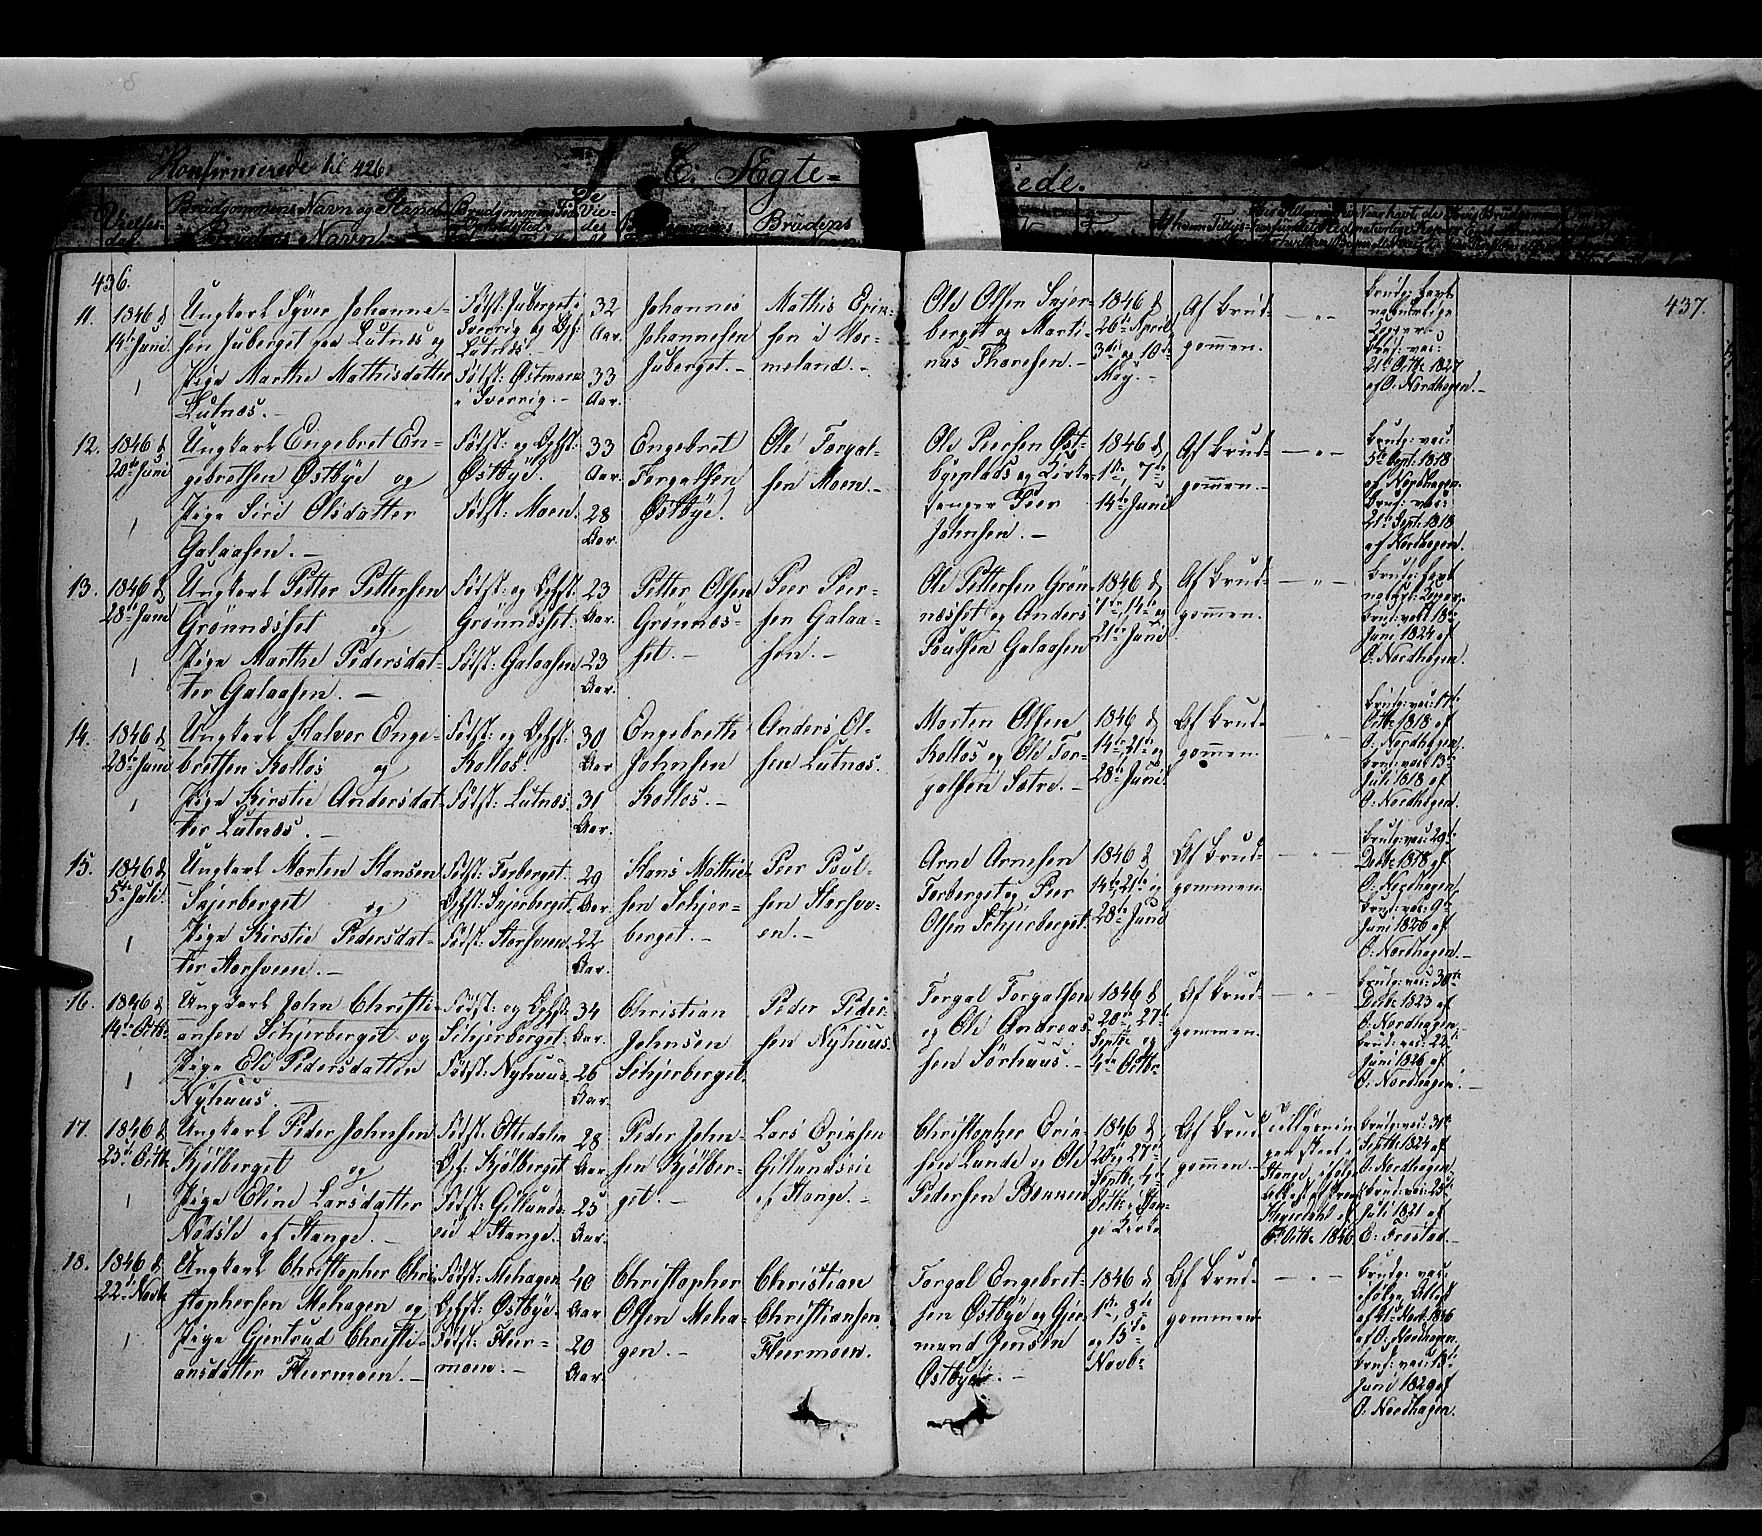 Konfirmerede til 426.
E. Ægte-
Vielses-
Brudgommens Navn og Stand
Brudens Navn
Brudens
436.
437.
11.
1846 d.
14de Juni
1
Ungkarl Syver Johanne-
sen Juberget paa Lutnes og
Pige Marthe Mathisdatter
Lutnes. –
Födst: Juberget i
Sverrig og Opf:
Lutnes. –
Födst: Östmark
i Sverrig. –
32
Aar.
33
Aar.
Johannes
Johannesen
Juberget. –
Mathis Erik-
sen i Ver-
meland. –
Ole Olsen Skjer-
berget og Marti-
nus Thoresen. –
1846 d.
26de April
3die og 10de
May. –
Af Brud-
gommen.
– „ –
Brudg: havt
naturlige
Kopper.
Brud: vac:
21de Octbr 1827
af O: Nordhagen. –
12.
1846 d.
20de Juni
1
Ungkarl Engebret En-
gebretsen Östbye og
Pige Siri Olsdatter
Galaasen. –
Födst: og Ophst:
Östbye.
Födst: Moen.
33
Aar.
28
Aar.
Engebret
Torgalsen
Östbye.
Ole Torgal-
sen Moen. –
Ole Peersen Öst-
byeplads og Kirke-
sanger Peer
Johnsen. –
1846 d.
1ste, 7de
14de Juni
Af Brud-
gommen. –
– „ –
Brudg: vac:
5te Sept: 1818
af Nordhagen.
Brud: vac:
21de Sept: 1818
af Nordhagen.
13.
1846 d.
28de Juni
1
Ungkarl Petter Pettersen
Grönnesset og
Pige Marthe Pedersdat-
ter Galaasen. –
Födst: og Ophst:
Grönnesset.
Födst: Galaasen
23
Aar.
23
Aar.
Petter Olsen
Grönnes-
set. –
Peer Peer-
sen Galaa-
sen. –
Ole Pettersen Grön-
nesset og Anders
Poulsen Galaasen
1846 d.
7de, 14de og
21de Juni
Af Brud-
gommen.
– „ –
Brudg: havt
naturl: Kopper.
Brud: vacc: 18de
Juni 1824 af
O: Nordhagen.
14.
1846 d.
28de Juni
1
Ungkarl Halver Enge-
bretsen Kolles og
Pige Kirstie Andersdat-
ter Lutnes. –
Födst: og Ophst:
Kolles.
Födst: Lutnes.
30
Aar
31
Aar.
Engebreth
Johnsen
Kolles. –
Anders Ol-
sen Lutnes.
Morten Olsen
Kolles og Ole Tor-
galsen Sætre. –
1846 d.
14de, 21de og
28de Juni
Af Brud-
gommen.
– „ –
Brudg: vac: 17de
Octbr 1818 af
O: Nordhagen.
Brud: vac: 13de
Juli 1818 af
O: Nordhagen.
15.
1846 d.
5te Juli
1
Ungkarl Morten Hansen
Skjerberget og
Pige Kirstie Pedersdat-
ter Storsveen. –
Födst: Torberget
Ophst: Skjerberget.
Födst: Storsveen
29
Aar.
22
Aar.
Hans Mathie-
sen Schjer-
berget. –
Peer Poul-
sen Storsve-
en. –
Arne Arnesen
Torberget og Peer
Olsen Schjerberget.
1846 d.
14de, 21de og
28de Juni
Af Brud-
gommen.
– „ –
Brudg: vac: 29de
Octbr 1818 af
O: Nordhagen,
Brud: vac: 9de
Juni 1826 af
O: Nordhagen. –
16.
1846 d.
14de Octbr
1
Ungkarl John Christi-
ansen Schjerberget og
Pige Eli Pedersdatter
Nÿhuus. –
Födst: og Ophst:
Schjerberget.
Födst: Nyhuus.
34
Aar.
26
Aar.
Christian
Johnsen
Schjerberget.
Peder Peder-
sen Nÿhuus.
Torgal Torgalsen
og Ole Andreas-
sen Sörhuus. –
1846 d.
20de, 27de
Septbr og
4de Octbr
Af Brud-
gommen.
– „ –
Brudg: vac: 30te
Octbr 1823 af
O: Nordhagen,
Brud: vac: 22de
Juni 1826 af
O: Nordhagen. –
17.
1846 d.
25de Octbr
1
Ungkarl Peder Johnsen
Kjölberget og
Pige Eline Larsdatter
Nödsle af Stange. –
Födst: Ottedalen
Opf: Kjölberget
Födst: Gillunds-
eie i Stange.
28
Aar.
25
Aar.
Peder John-
sen Kjölber-
get. –
Lars Eriksen
Gillundseie
af Stange. –
Christopher Erik-
sen Lunde og Ole
Pedersen Bennen
1846 d.
20de og 27de
Septbr, 4de
Octbr i Stan-
ge Kirke
Af Brud-
gommen. –
Tillysnin-
gen skeet i
Stange, ifölge
Attest af
6te Octbr 1846
Brudg: vac:
Septbr 1824 af
O: Nordhagen,
Brud: vac: 25de
Juli 1821 af
E: Frostad. –
18.
1846 d.
22de Novbr
1
Ungkarl Christopher Chri-
stophersen Mehagen og
Pige Gjertrud Christi-
ansdatter Flermoen. –
Födst: Mehagen
Ophst: Östbye.
Födst: Fler-
moen. –
40
Aar
20
Aar.
Christopher
Olsen Meha-
gen. –
Christian
Christiansen
Flermoen.
Torgal Engebret-
sen Östbye og Gjer-
mund Jensen
Östbye. –
1846 d.
1ste, 8de
og 15de
Novbr
Af Brud-
gommen
– „ –
Brudg: vac:
ifölge Attest
af 21de Novbr 1846
af O: Nordhagen.
Brud: vac: 13de
Juni 1829 af
O: Nordhagen.